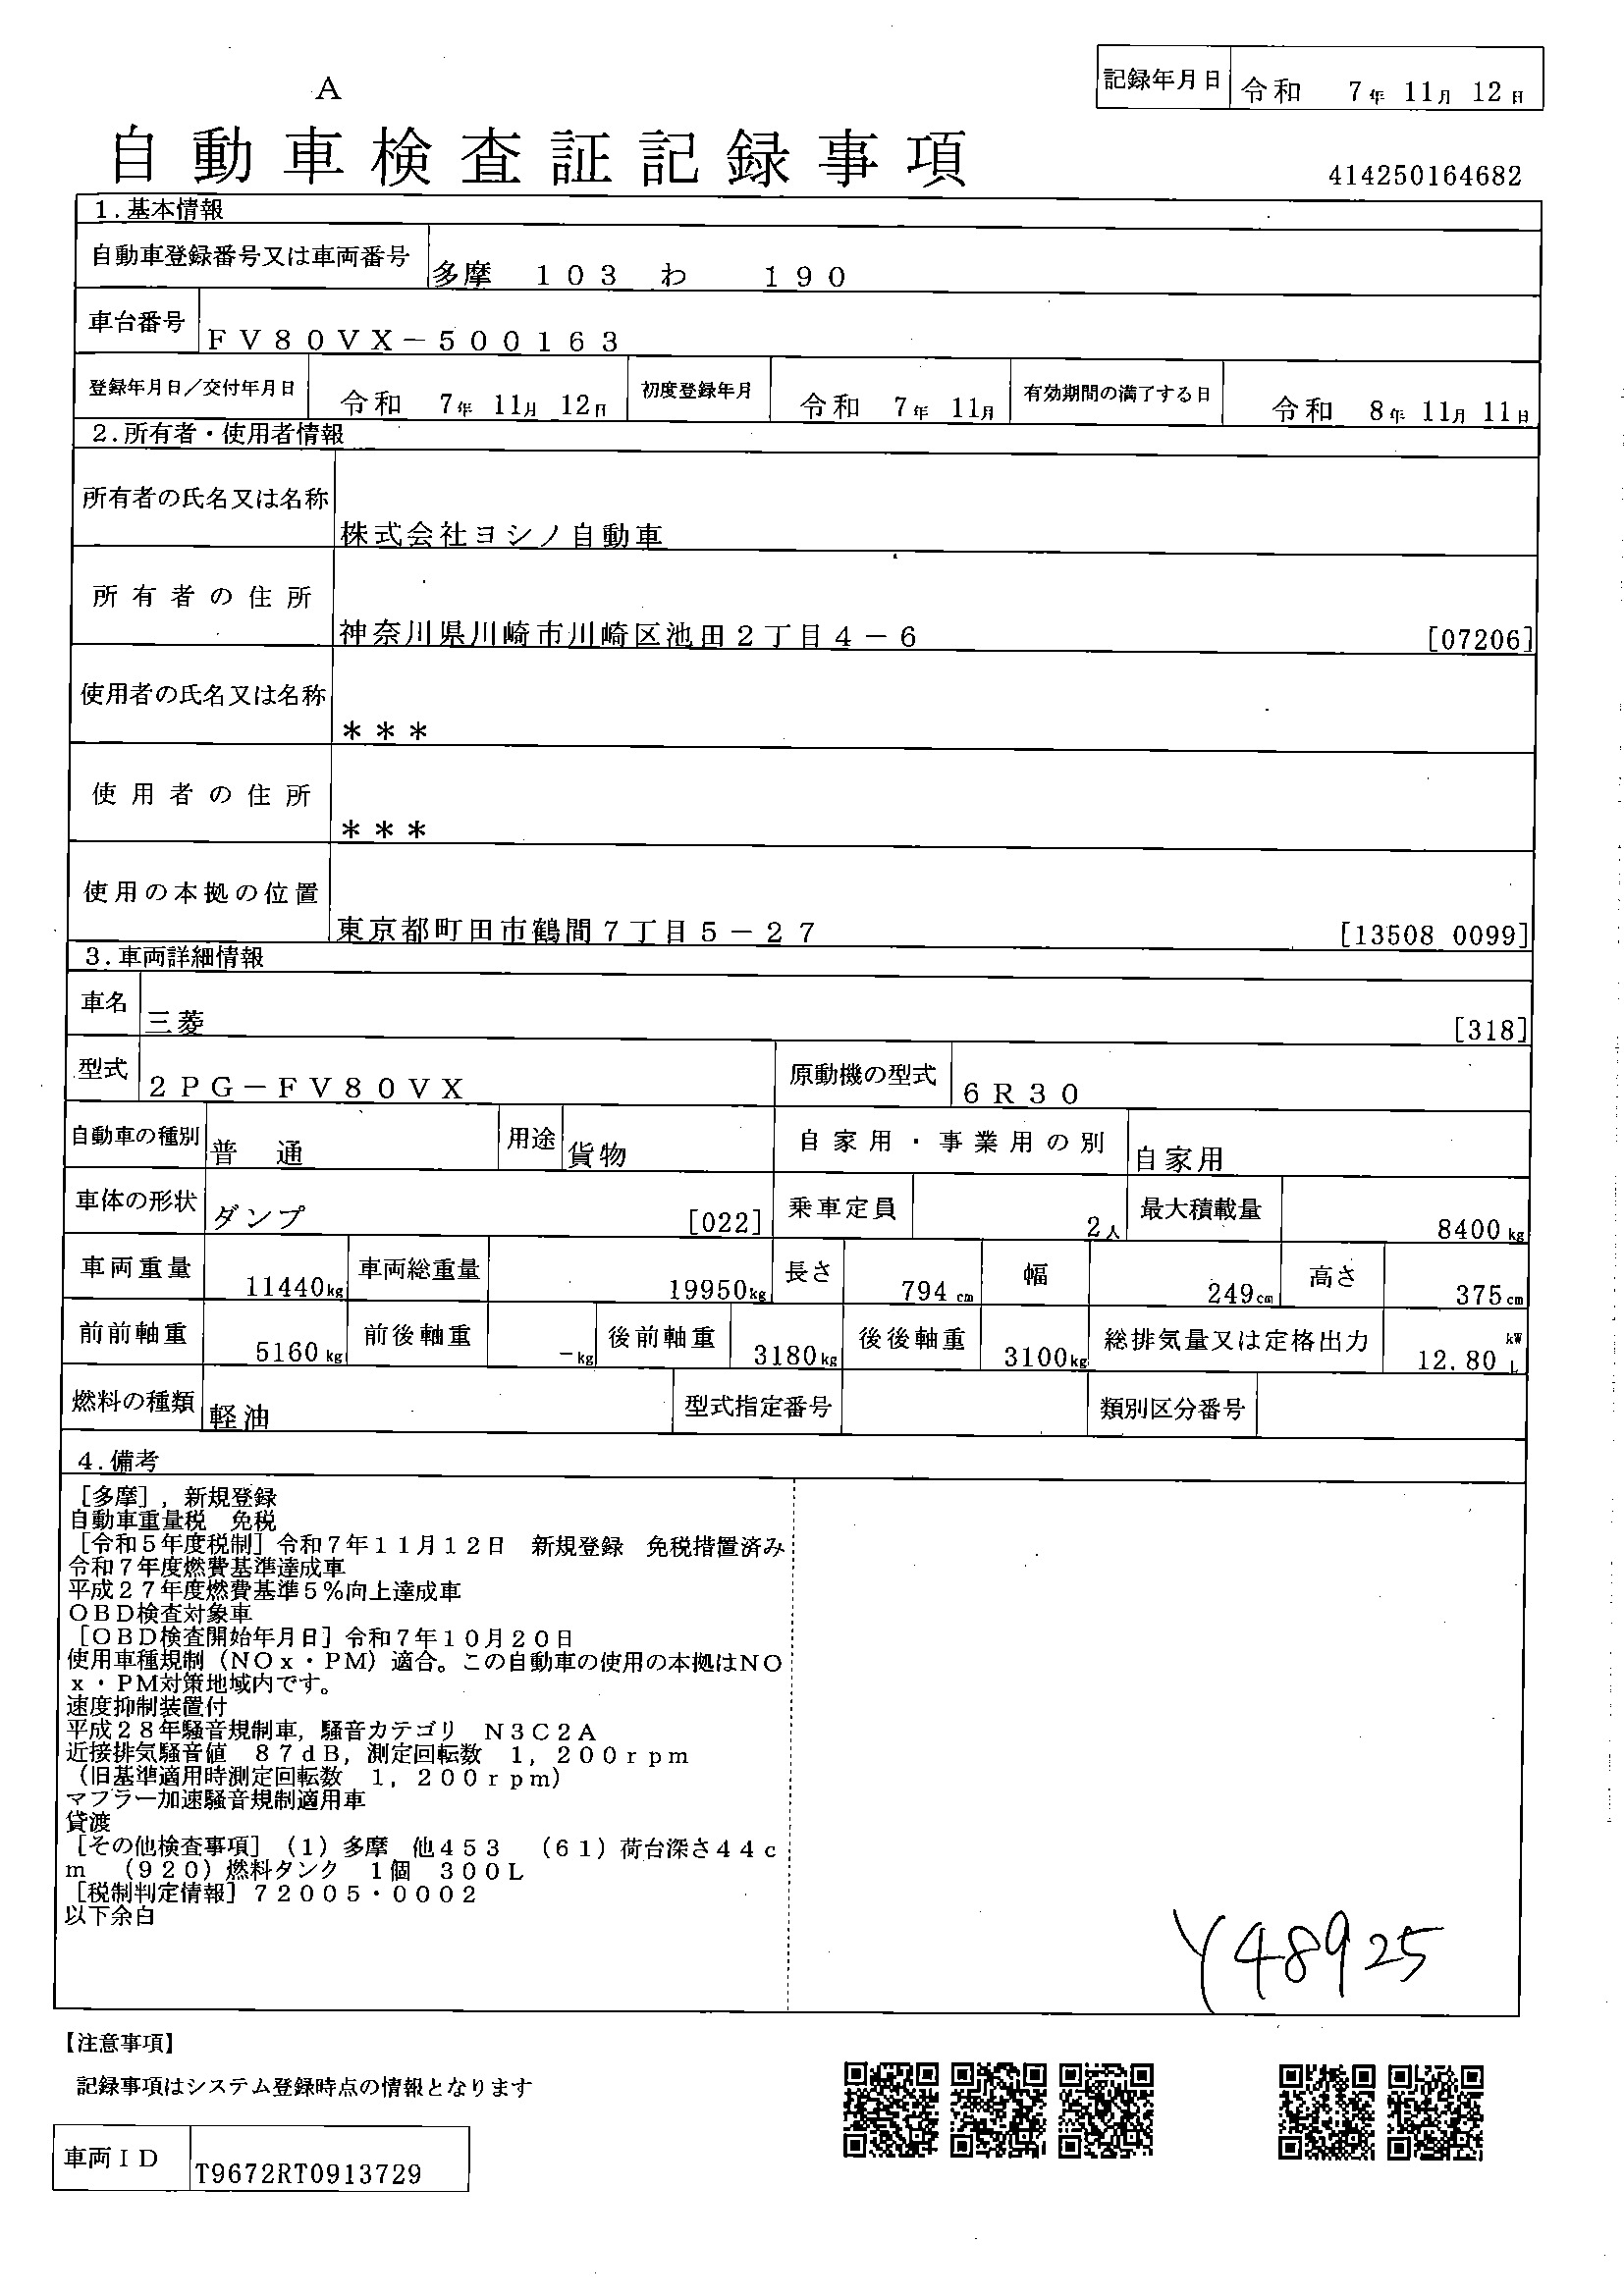 A
記録年月日 令和 7年 11月 12日
自動車検査証記録事項
414250164682
1.基本情報
自動車登録番号又は車両番号 多摩 103 わ 190
車台番号 FV80VX-500163
登録年月日/交付年月日 令和 7年 11月 12日 初度登録年月 令和 7年 11月 有効期間の満了する日 令和 8年 11月 11日
2.所有者・使用者情報
所有者の氏名又は名称 株式会社ヨシノ自動車
所有者の住所 神奈川県川崎市川崎区池田2丁目4-6 [07206]
使用者の氏名又は名称 ***
使用者の住所 ***
使用の本拠の位置 東京都町田市鶴間7丁目5-27 [13508 0099]
3.車両詳細情報
車名 三菱 [318]
型式 2PG-FV80VX 原動機の型式 6R30
自動車の種別 普 通 用途 貨物 自家用・事業用の別 自家用
車体の形状 ダンプ [022] 乗車定員 2人 最大積載量 8400kg
車両重量 11440kg 車両総重量 19950kg 長さ 794cm 幅 249cm 高さ 375cm
前前軸重 5160kg 前後軸重 -kg 後前軸重 3180kg 後後軸重 3100kg 総排気量又は定格出力 12.80 kW L
燃料の種類 軽油 型式指定番号 類別区分番号
4.備考
[多摩],新規登録
自動車重量税 免税
[令和5年度税制]令和7年11月12日 新規登録 免税措置済み
令和7年度燃費基準達成車
平成27年度燃費基準5%向上達成車
OBD検査対象車
[OBD検査開始年月日]令和7年10月20日
使用車種規制(NOx・PM)適合。この自動車の使用の本拠はNO
x・PM対策地域内です。
速度抑制装置付
平成28年騒音規制車,騒音カテゴリ N3C2A
近接排気騒音値 87dB,測定回転数 1,200rpm
(旧基準適用時測定回転数 1,200rpm)
マフラー加速騒音規制適用車
貸渡
[その他検査事項](1)多摩 他453 (61)荷台深さ44c
m (920)燃料タンク 1個 300L
[税制判定情報]72005・0002
以下余白
Y48925
【注意事項】
記録事項はシステム登録時点の情報となります
車両ID T9672RT0913729